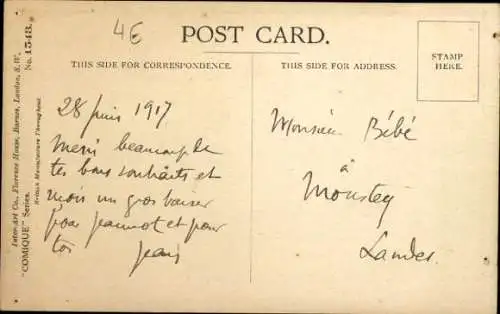 4€
POST CARD.
THIS SIDE FOR CORRESPONDENCE.
THIS SIDE FOR ADDRESS.
STAMP
HERE.
Inter-Art Co., Florence House, Barnes, London, S.W.
"COMIQUE" Series. No. 1543.
British Manufacture Throughout.
28 juin 1917
Merci beaucoup de
tes bons souhaits et
mois un gros baiser
pour Jeannot et pour
toi Jean
Monsieur Bébé
à
Moustey
Landes.